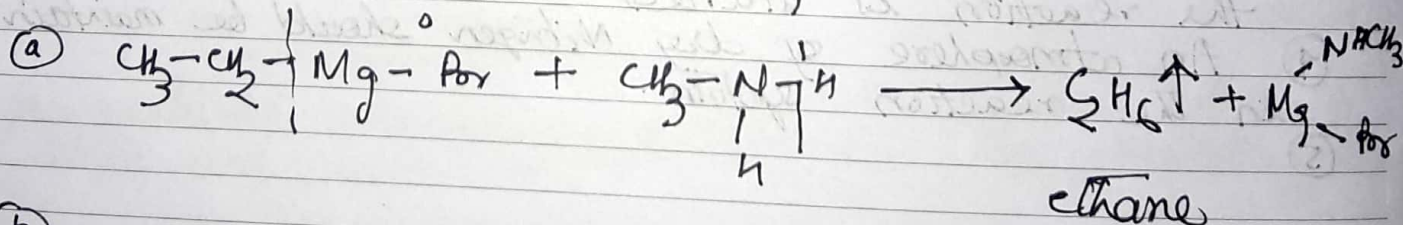 (a) CH3-CH2-Mg-Br + CH3-N-H → C2H6↑ + Mg-Br
NHCH3
H
ethane